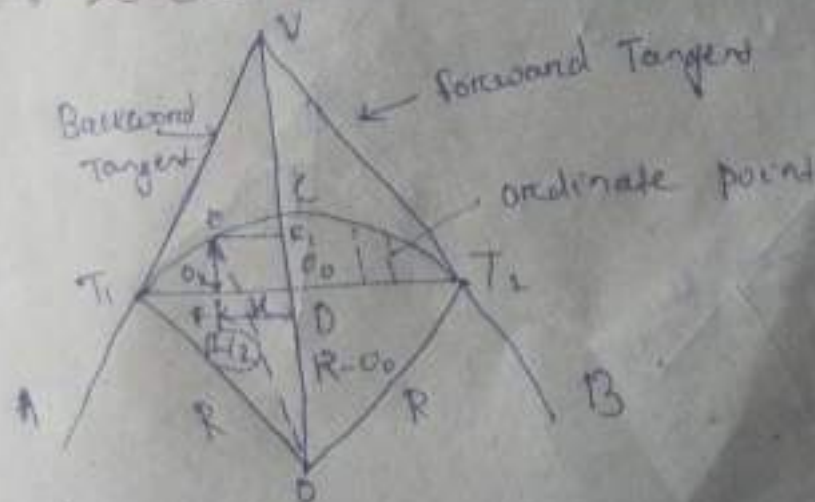 V
forward Tangent
Backword
Tangent
C
ordinate point
E
E1
O0
T1
Ox
T2
F
x
D
L/2
R-O0
A
R
R
B
O